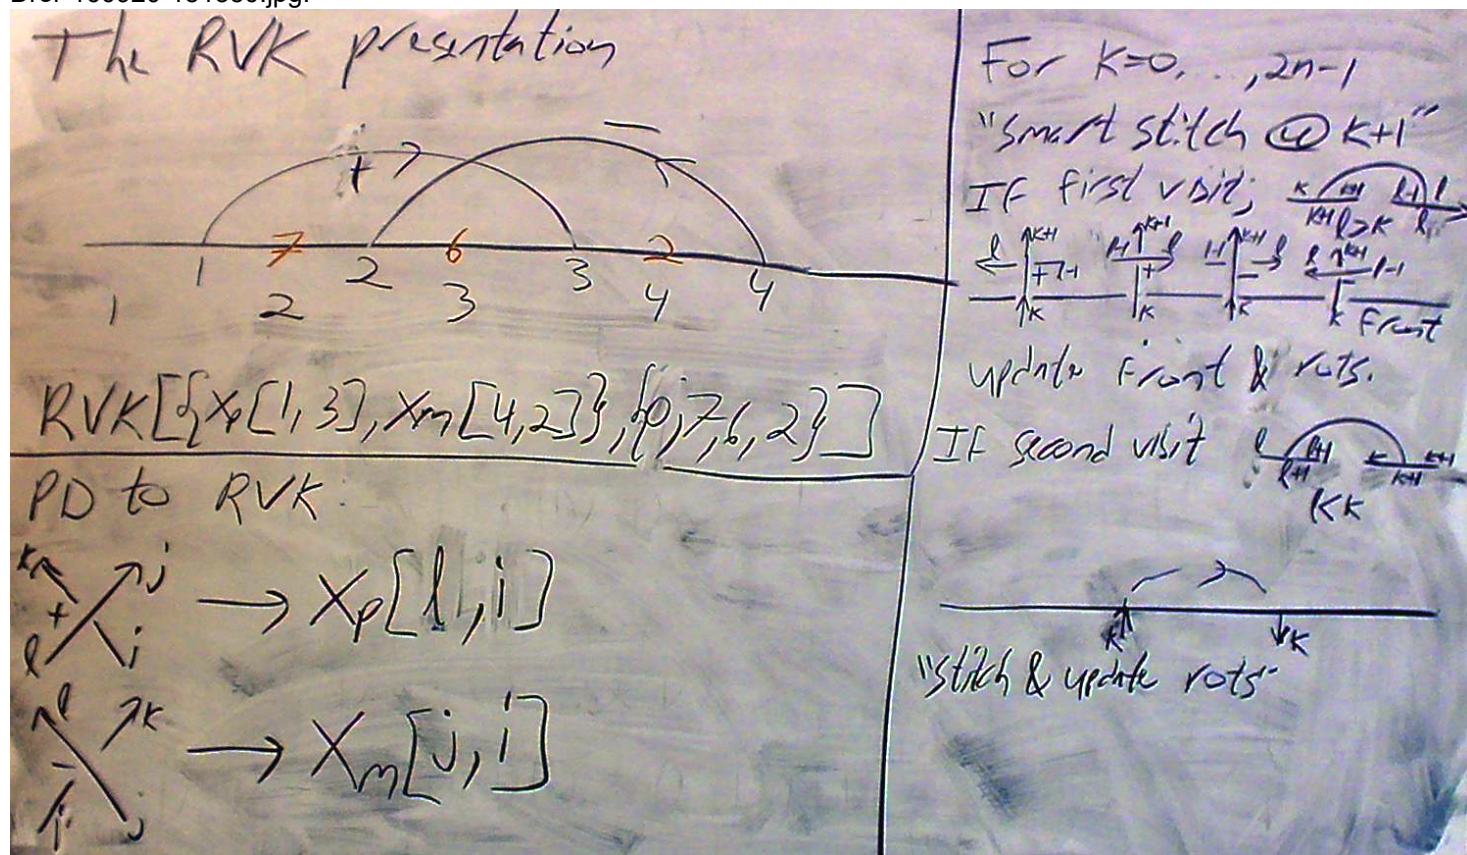 The RVK presentation
+
−
7 6 2
1 2 3 4
1 2 3 4
RVK[{Xp[1,3], Xm[4,2]}, {0,7,6,2}]
PD to RVK
k j
+
l i
→ Xp[l,i]
l k
−
i j
→ Xm[j,i]
For k=0,...,2n-1
"smart stitch @ k+1"
If first visit;
k k+1 l-1 l
k+1 l>k l
l k+1 l-1 k+1 l l-1 k+1 l l k+1 l-1
+ + − −
k k k k Front
update Front & rots.
If second visit
l l+1 k k+1
l+1 k+1
l<k
k k
"stitch & update rots"